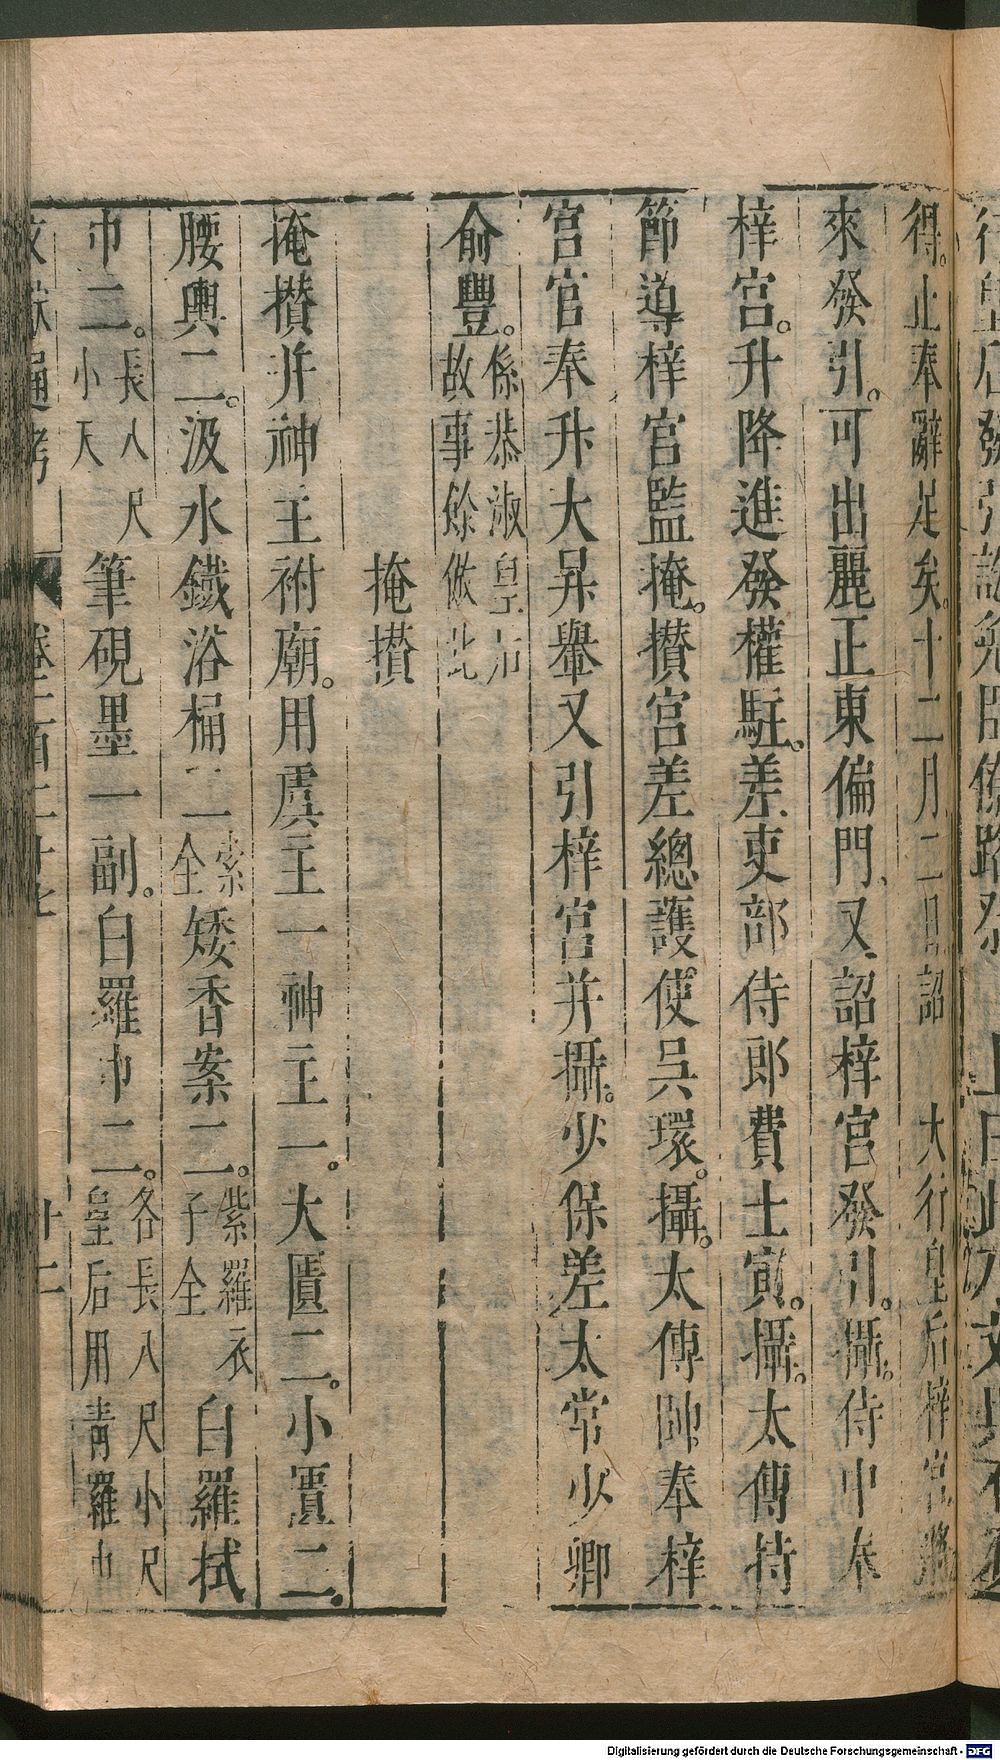 行皇后發引
得止奉辭足矣十二月二日詔 大行皇后梓宮將
來發引。可出麗正東偏門又詔梓宮發引。攝。侍中奉
梓宮。升降進發權駐。差吏部侍郎費士寅。攝。太傅持
節導梓官監掩。攢宮差總護使吳環。攝。太傅帥奉梓
宮官奉升大昇轝又引梓宮并攝。少保差太常少卿
俞豐。係恭淑皇后故事餘倣此
掩攢
掩攢并神主祔廟。用虞主一神主一。大匱二。小匱二。
腰輿二。汲水鐵浴桶二索全矮香案二。紫羅衣子全白羅拭
巾二。長八尺小天筆硯墨一副。白羅巾二。各長八尺小尺皇后用青羅巾
文獻通考 卷一百二十七 十二
Digitalisierung gefördert durch die Deutsche Forschungsgemeinschaft - DFG